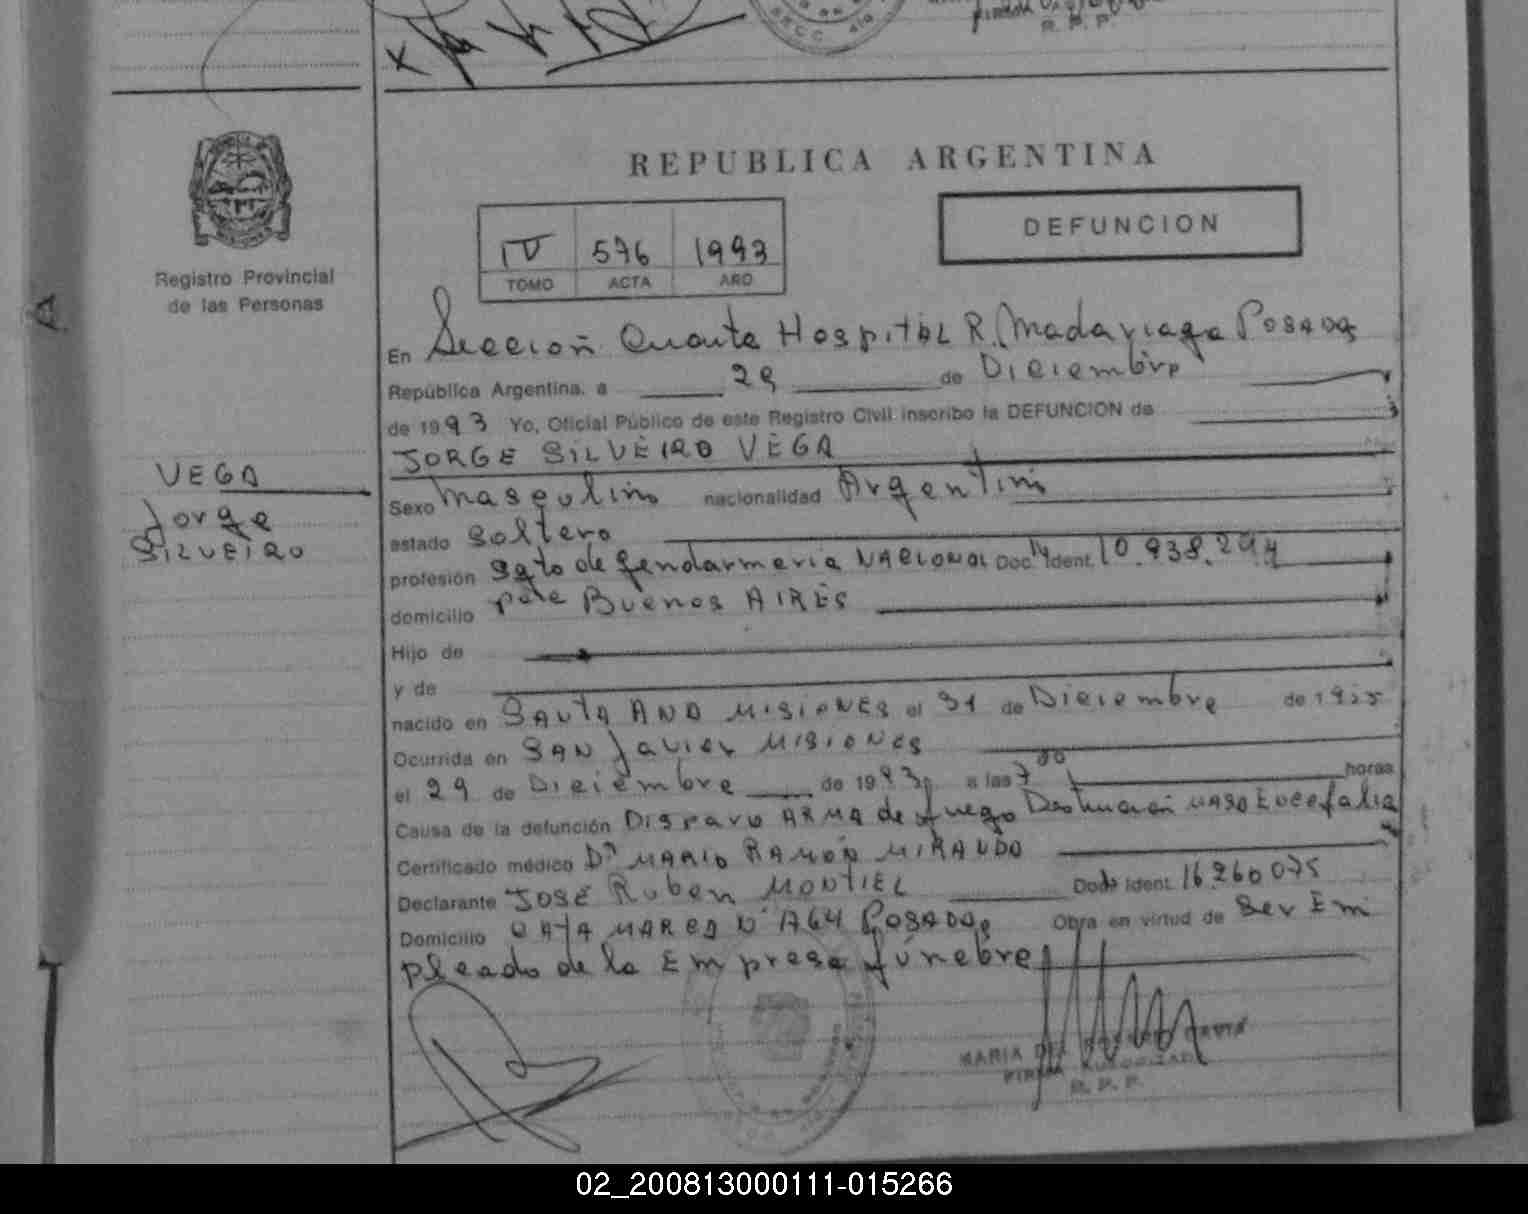 FIRMA
R. P. P.
REPUBLICA ARGENTINA
DEFUNCION
IV 576 1993
TOMO ACTA AÑO
Registro Provincial
de las Personas
A
En Sección Cuarta Hospital R. Madariaga Posadas
República Argentina, a 29 de Diciembre
de 1993 Yo, Oficial Público de este Registro Civil inscribo la DEFUNCION de
JORGE SILVEIRO VEGA
VEGA
Jorge
SILVEIRO
Sexo masculino nacionalidad Argentino
estado soltero
profesión Sgto de gendarmeria NACIONAL Doc. Ident. 10.938.294
domicilio pcia Buenos AIRES
Hijo de
y de
nacido en SANTA ANA MISIONES el 31 de Diciembre de 19
Ocurrida en SAN Javier MISIONES
el 29 de Diciembre de 1993 a las 7 00 horas
Causa de la defunción DISparo ARMA de fuego Destrucción MASA Encefalia
Certificado médico Dr MARIO RAMON MIRANDO
Declarante JOSÉ Ruben MONTIEL Doc. Ident. 16.260.075
Domicilio CATAMARCA N° 1764 POSADAS Obra en virtud de Ser Em
pleado de la Empresa fúnebre
MARIA DEL
FIRMA AUTORIZADA
R. P. P.
02_200813000111-015266